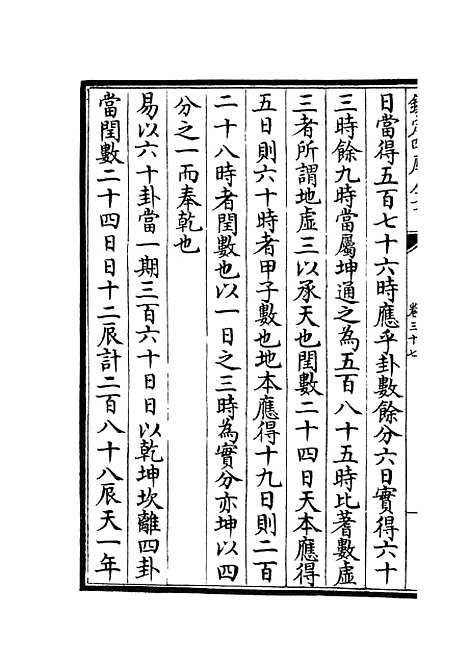 欽定四庫全書
卷三十七
日當得五百七十六時應乎卦數餘分六日實得六十
三時餘九時當屬坤通之為五百八十五時比蓍數虛
三者所謂地虛三以承天也閏數二十四日天本應得
五日則六十時者甲子數也地本應得十九日則二百
二十八時者閏數也以一日之三時為實分亦坤以四
分之一而奉乾也
易以六十卦當一期三百六十日日以乾坤坎離四卦
當閏數二十四日日十二辰計二百八十八辰天一年